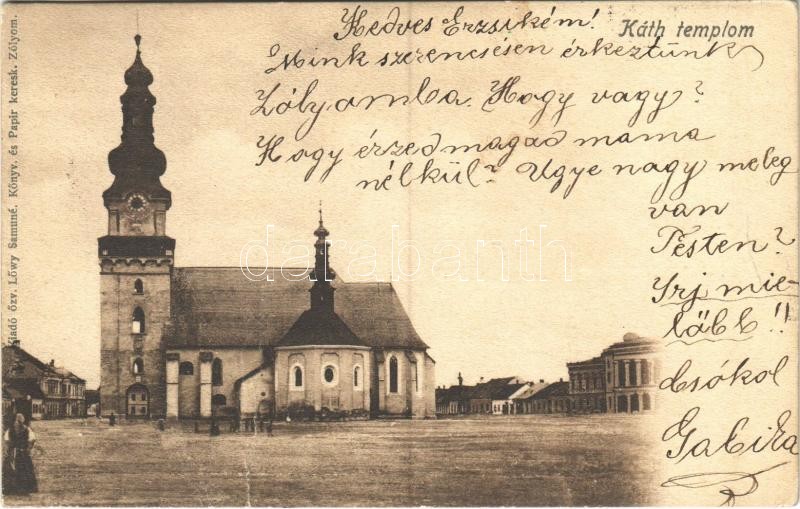 Káth templom
Kedves Erzsikém!
Mink szerencsésen érkeztünk
Zólyomba. Hogy vagy?
Hogy érzed magad mama
nélkül? Ugye nagy meleg
van
Pesten?
Irj mie-
löbb!!
Csókol
Gabika
Kiadó özv. Lőwy Samuné. Könyv. és Papir keresk. Zólyom.
darabanth